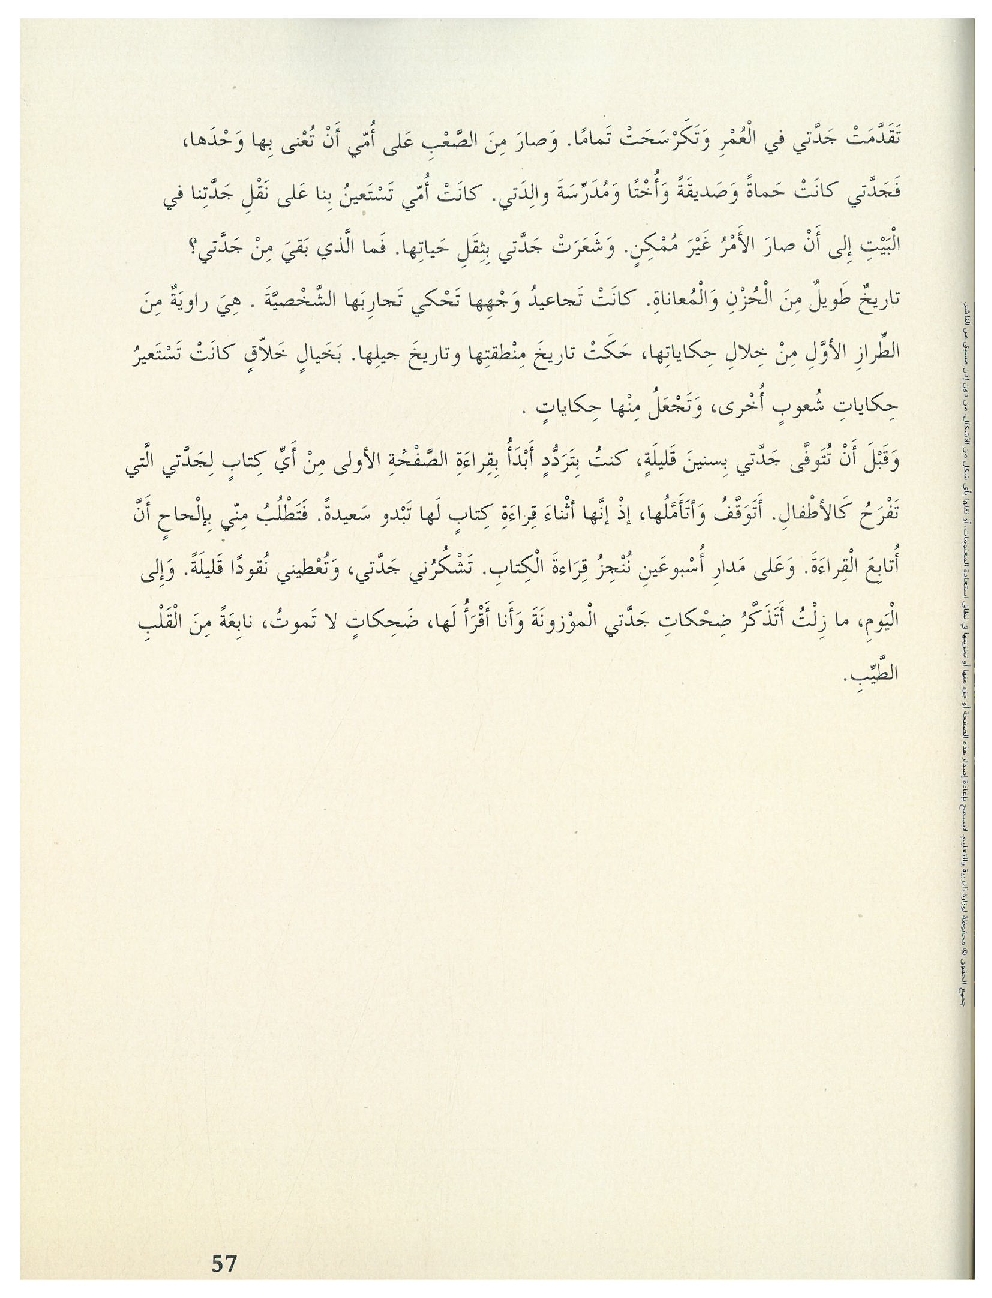 تَقَدَّمَتْ جَدَّتي في الْعُمْرِ وَتَكَرْسَحَتْ تَمامًا. وَصارَ مِنَ الصَّعْبِ عَلى أُمّي أَنْ تُعْنى بِها وَحْدَها،
فَجَدَّتي كانَتْ حَماةً وَصَديقَةً وَأُخْتًا وَمُدَرِّسَةَ والِدَتي. كانَتْ أُمّي تَسْتَعينُ بِنا عَلى نَقْلِ جَدَّتِنا في
الْبَيْتِ إلى أَنْ صارَ الأَمْرُ غَيْرَ مُمْكِنٍ. وَشَعَرَتْ جَدَّتي بِثِقَلِ حَياتِها. فَما الَّذي بَقيَ مِنْ جَدَّتي؟
تاريخٌ طَويلٌ مِنَ الْحُزْنِ وَالْمُعاناةِ. كانَتْ تَجاعيدُ وَجْهِها تَحْكي تَجارِبَها الشَّخْصيَّةَ . هِيَ راوِيَةٌ مِنَ
الطِّرازِ الأوَّلِ مِنْ خِلالِ حِكاياتِها، حَكَتْ تاريخَ مِنْطقتِها وتاريخَ جيلِها. بَخَيالٍ خَلّاقٍ كانَتْ تَسْتَعيرُ
حِكاياتِ شُعوبٍ أُخْرى، وَتَجْعَلُ مِنْها حِكاياتٍ .
وَقَبْلَ أَنْ تُتَوفَّى جَدَّتي بِسنينَ قَليلَةٍ، كنتُ بِتَرَدُّدٍ أَبْدَأُ بِقِراءَةِ الصَّفْحْةِ الأولى مِنْ أَيِّ كِتابٍ لِجَدَّتي الَّتي
تَفْرَحُ كَالأطْفالِ. أَتَوَقَّفُ وَأتَأَمَّلُها، إذْ إنَّها أثْناءَ قِراءَةِ كِتابٍ لَها تَبْدو سَعيدةً. فَتَطْلُبُ مِنّي بِإلْحاحٍ أَنَّ
أُتابِعَ الْقِراءَةَ. وَعَلى مَدارِ أُسْبوعَينِ نُنْجِزُ قِرَاءةَ الْكِتابِ. تَشْكُرُني جَدَّتي، وَتُعْطيني نُقودًا قَليلَةً. وَإلى
الْيَومِ، ما زِلْتُ أَتَذَكَّرُ ضِحْكاتِ جَدَّتي الْموْزونَةَ وَأَنا أَقْرَأُ لَها، ضَحِكاتٍ لا تَموتُ، نابِعَةً مِنَ الْقَلْبِ
الطَّيِّبِ.
57